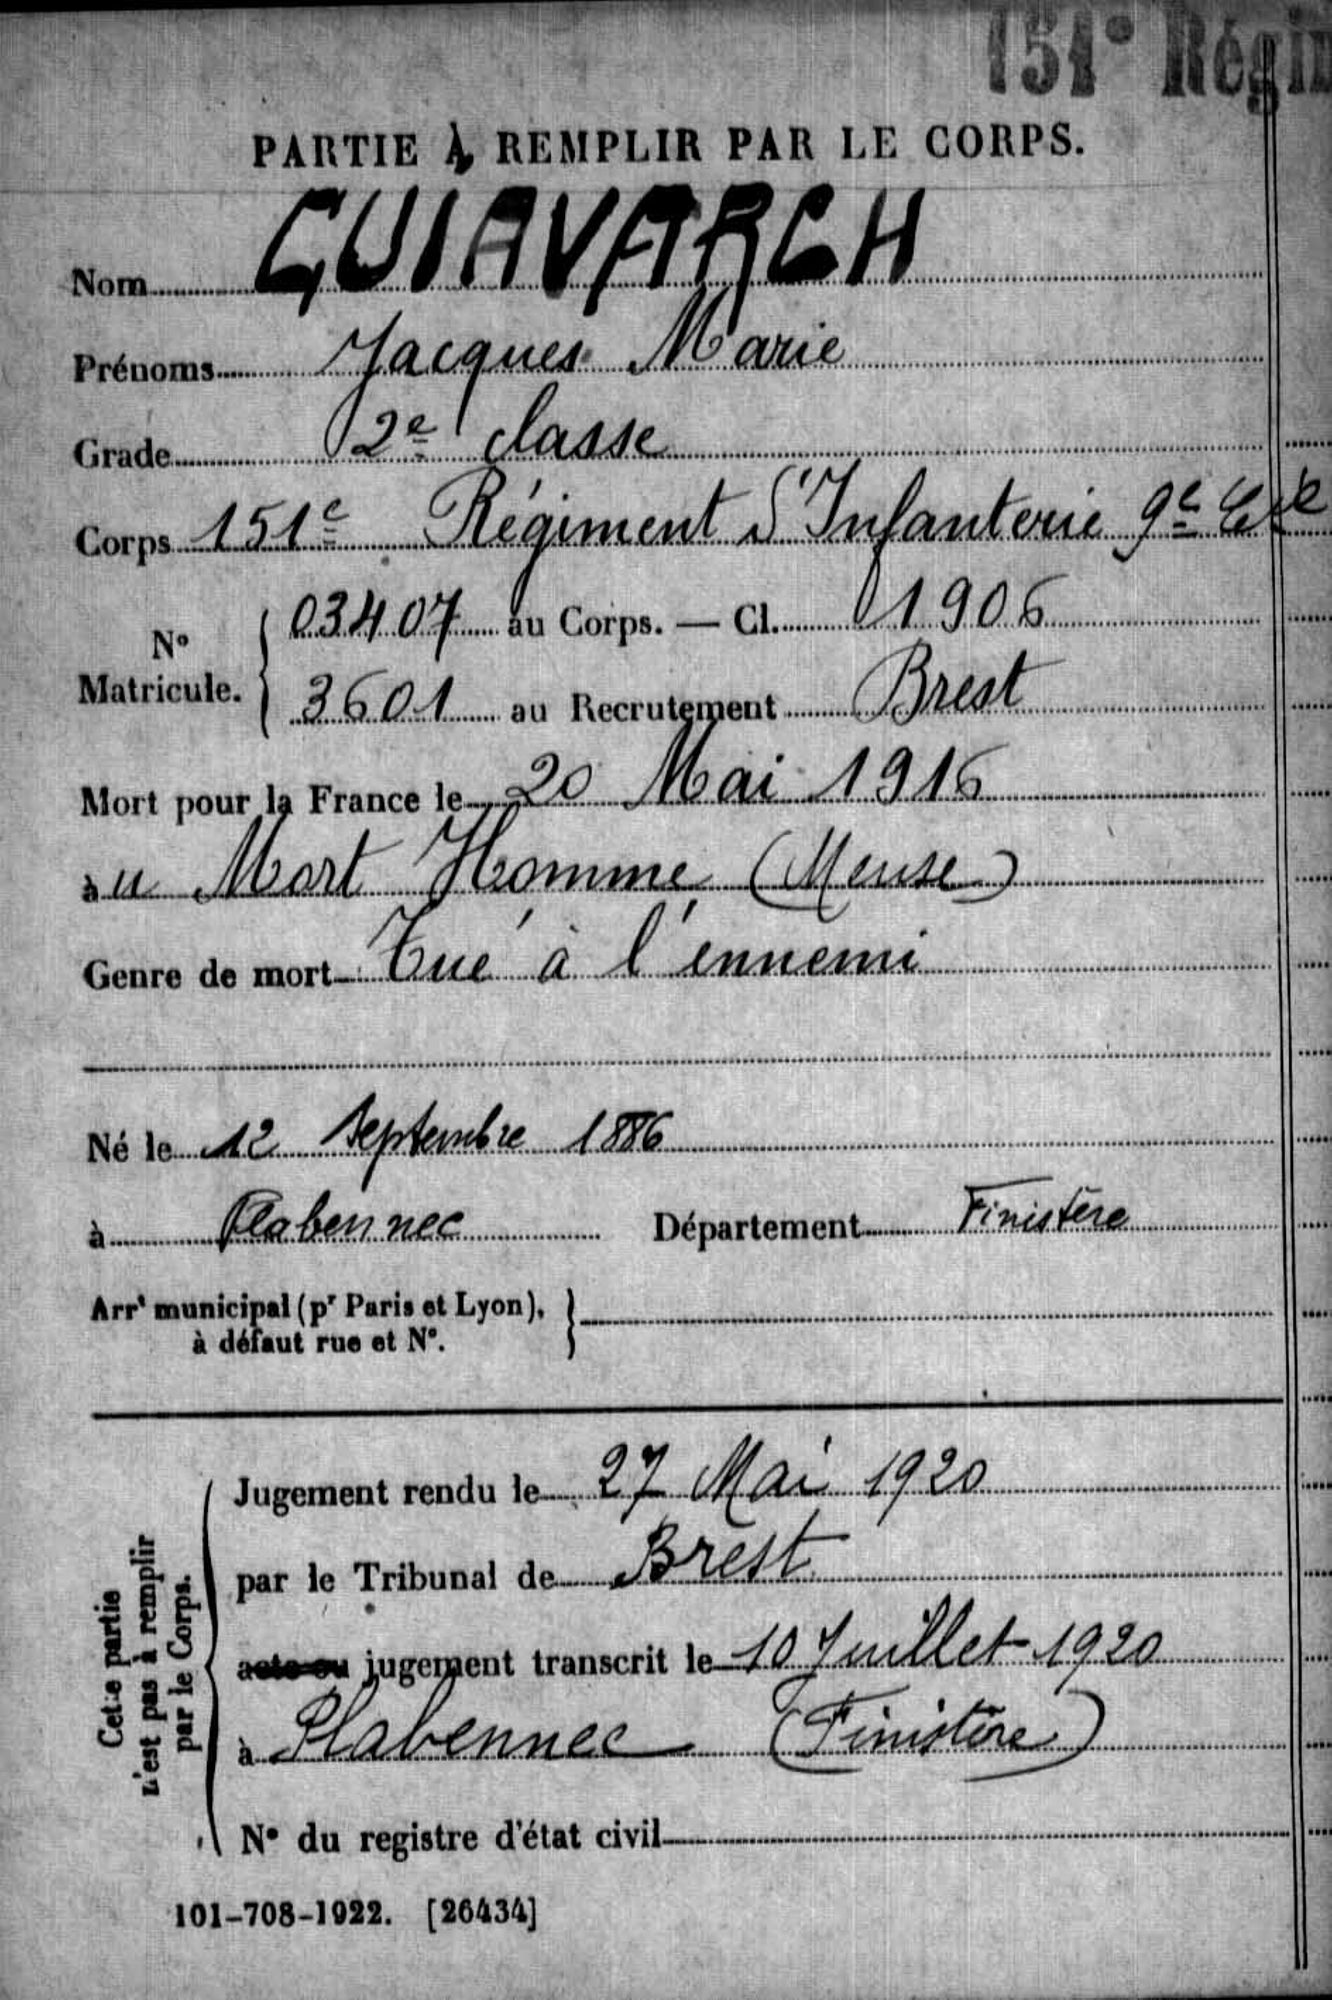 151e Régim
PARTIE À REMPLIR PAR LE CORPS.
Nom GUIAVARCH
Prénoms Jacques Marie
Grade 2e classe
Corps 151e Régiment d'Infanterie 9e Cie
N° Matricule. 03407 au Corps. — Cl. 1906
3601 au Recrutement Brest
Mort pour la France le 20 Mai 1916
au Mort Homme (Meuse)
Genre de mort Tué à l'ennemi
Né le 12 Septembre 1886
à Plabennec Département Finistère
Arrt municipal (pr Paris et Lyon),
à défaut rue et N°.
Cette partie
n'est pas à remplir
par le Corps.
Jugement rendu le 27 Mai 1920
par le Tribunal de Brest
acte ou jugement transcrit le 10 Juillet 1920
à Plabennec (Finistère)
N° du registre d'état civil
101-708-1922. [26434]